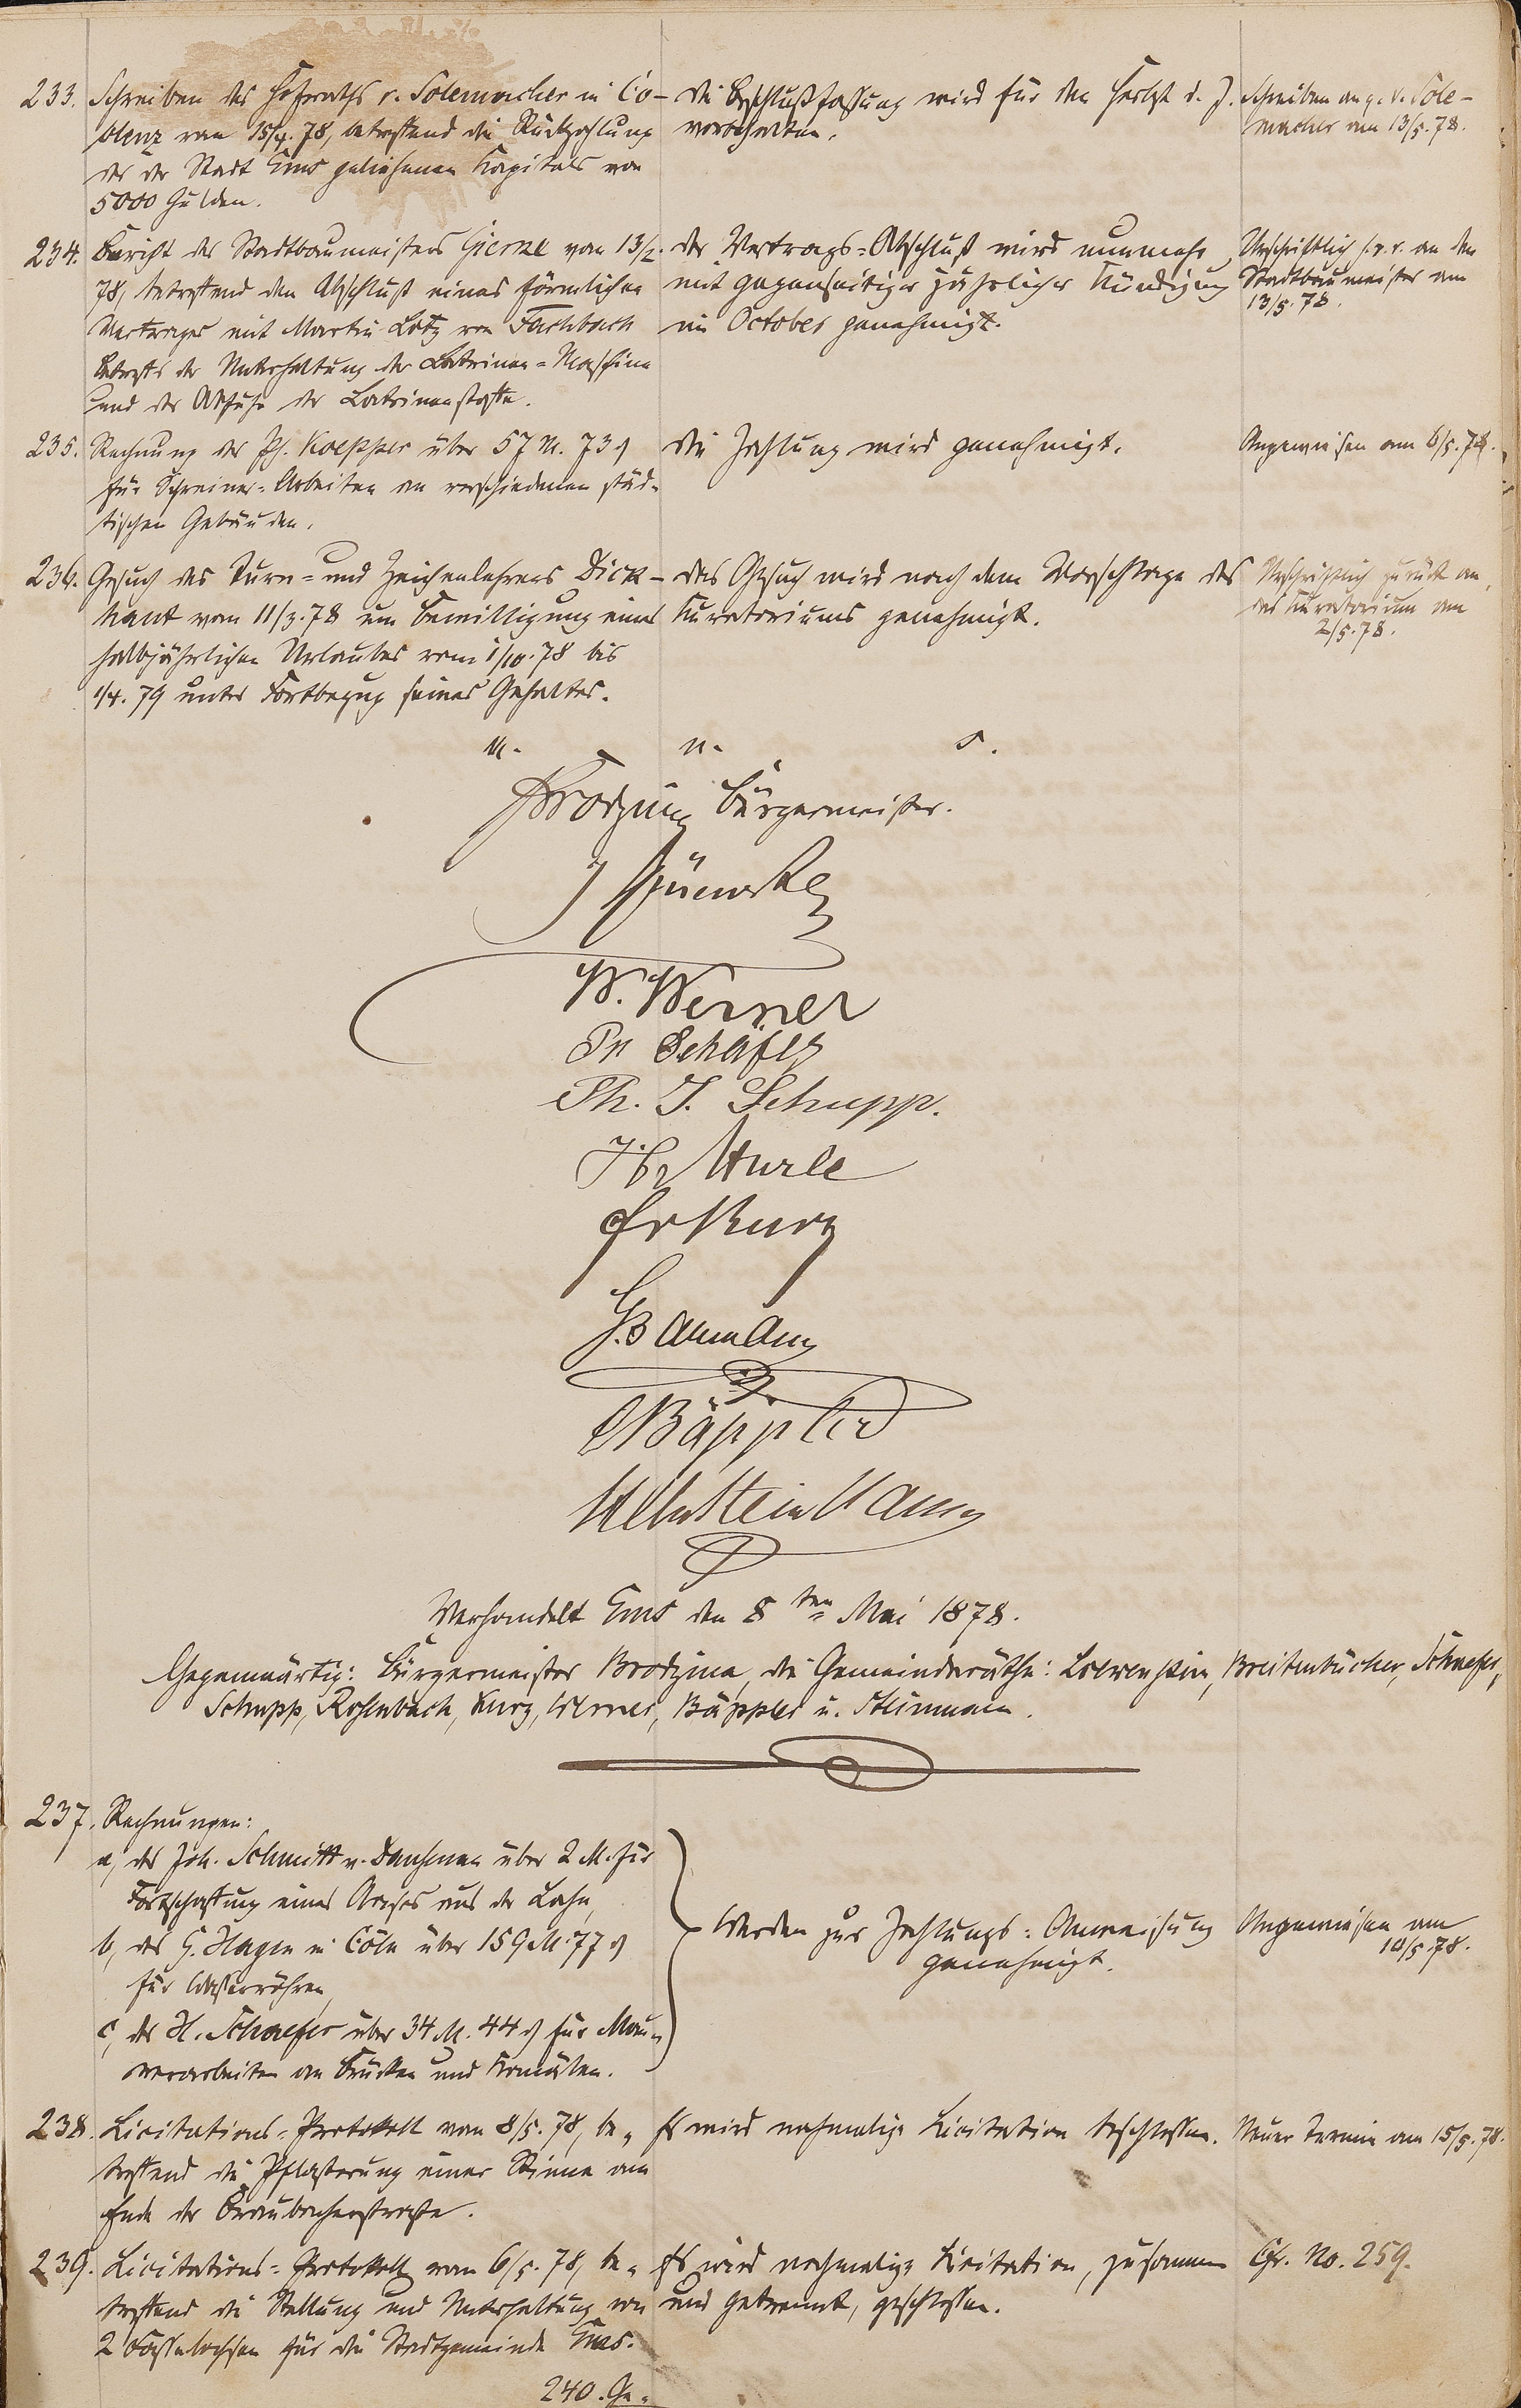 233. Schreiben des Hofraths v. Solemacher in Co-
blenz vom 15/4. 78, betreffend die Rückzahlung
des der Stadt Ems geliehenen Kapitals von
5000 Gulden.
Die Beschlußfassung wird für den Herbst d. J.
vorbehalten.
Schreiben an p. v. Sole-
macher am 13/5. 78.
234. Bericht des Stadtbaumeisters vom 13/2.
78, betreffend den Abschluß eines förmlichen
Vertrages mit Martin Lotz von Fachbach
betreffs der Unterhaltung der Latrinen-Maschine
und der Abfuhr der Latrinenstoffe.
Der Vertrags-Abschluß wird nunmehr
mit gegenseitiger jährlicher Kündigung
im October genehmigt.
Urschriftlich s. v. r. an den
Stadtbaumeister am
13/5. 78.
235. Rechnung des Ph. Koepper über 57 M. 73 ₰
für Schreiner-Arbeiten an verschiedenen städ-
tischen Gebäuden.
Die Zahlung wird genehmigt.
Angewiesen am 6/5. 78.
236. Gesuch des Turn- und Zeichenlehrers Dick-
haut vom 11/3. 78 um Bewilligung eines
halbjährlichen Urlaubes vom 1/10. 78 bis
1/4. 79 unter Fortbezug seines Gehaltes.
Das Gesuch wird nach dem Vorschlage des
Kuratoriums genehmigt.
Urschriftlich zurück an
das Kuratorium am
2/5. 78.
v. g. u.
Brodzina Bürgermeister.
W. Werner
Ph Schäfer
Ph. J. Schupp.
Fr Kurz
G. Baumann
Bäppler
Steinmann
Verhandelt Ems den 8ten Mai 1878.
Gegenwärtig: Bürgermeister Brodzina, die Gemeinderäthe: Loewenstein, Breitenbücher, Schaefer,
Schupp, Rohrbach, Kurz, Werner, Bäppler u. Steinmann.
237. Rechnungen:
a, des Joh. Schmitt v. Dausenau über 2 M. für
Fortschaffung eines Aases aus der Lahn,
b, des G. Hagen in Cöln über 159 M. 77 ₰
für Wasserröhren,
c, des H. Schaefer über 34 M. 44 ₰ für Mau-
rerarbeiten an Brücken und Kanälen.
Werden zur Zahlungs-Anweisung
genehmigt.
Angewiesen am
10/5. 78.
238. Licitations-Protokoll vom 8/5. 78, be-
treffend die Pflasterung einer Rinne am
Ende der Braubacherstraße.
Es wird nochmalige Licitation beschlossen.
Neuer Termin am 15/5. 78.
239. Licitations-Protokoll vom 6/5. 78, be-
treffend die Stellung und Unterhaltung von
2 Fasselochsen für die Stadtgemeinde Ems.
Es wird nochmalige Licitation, zusammen
und getrennt, beschlossen.
Cfr. No. 259.
240. Ge-